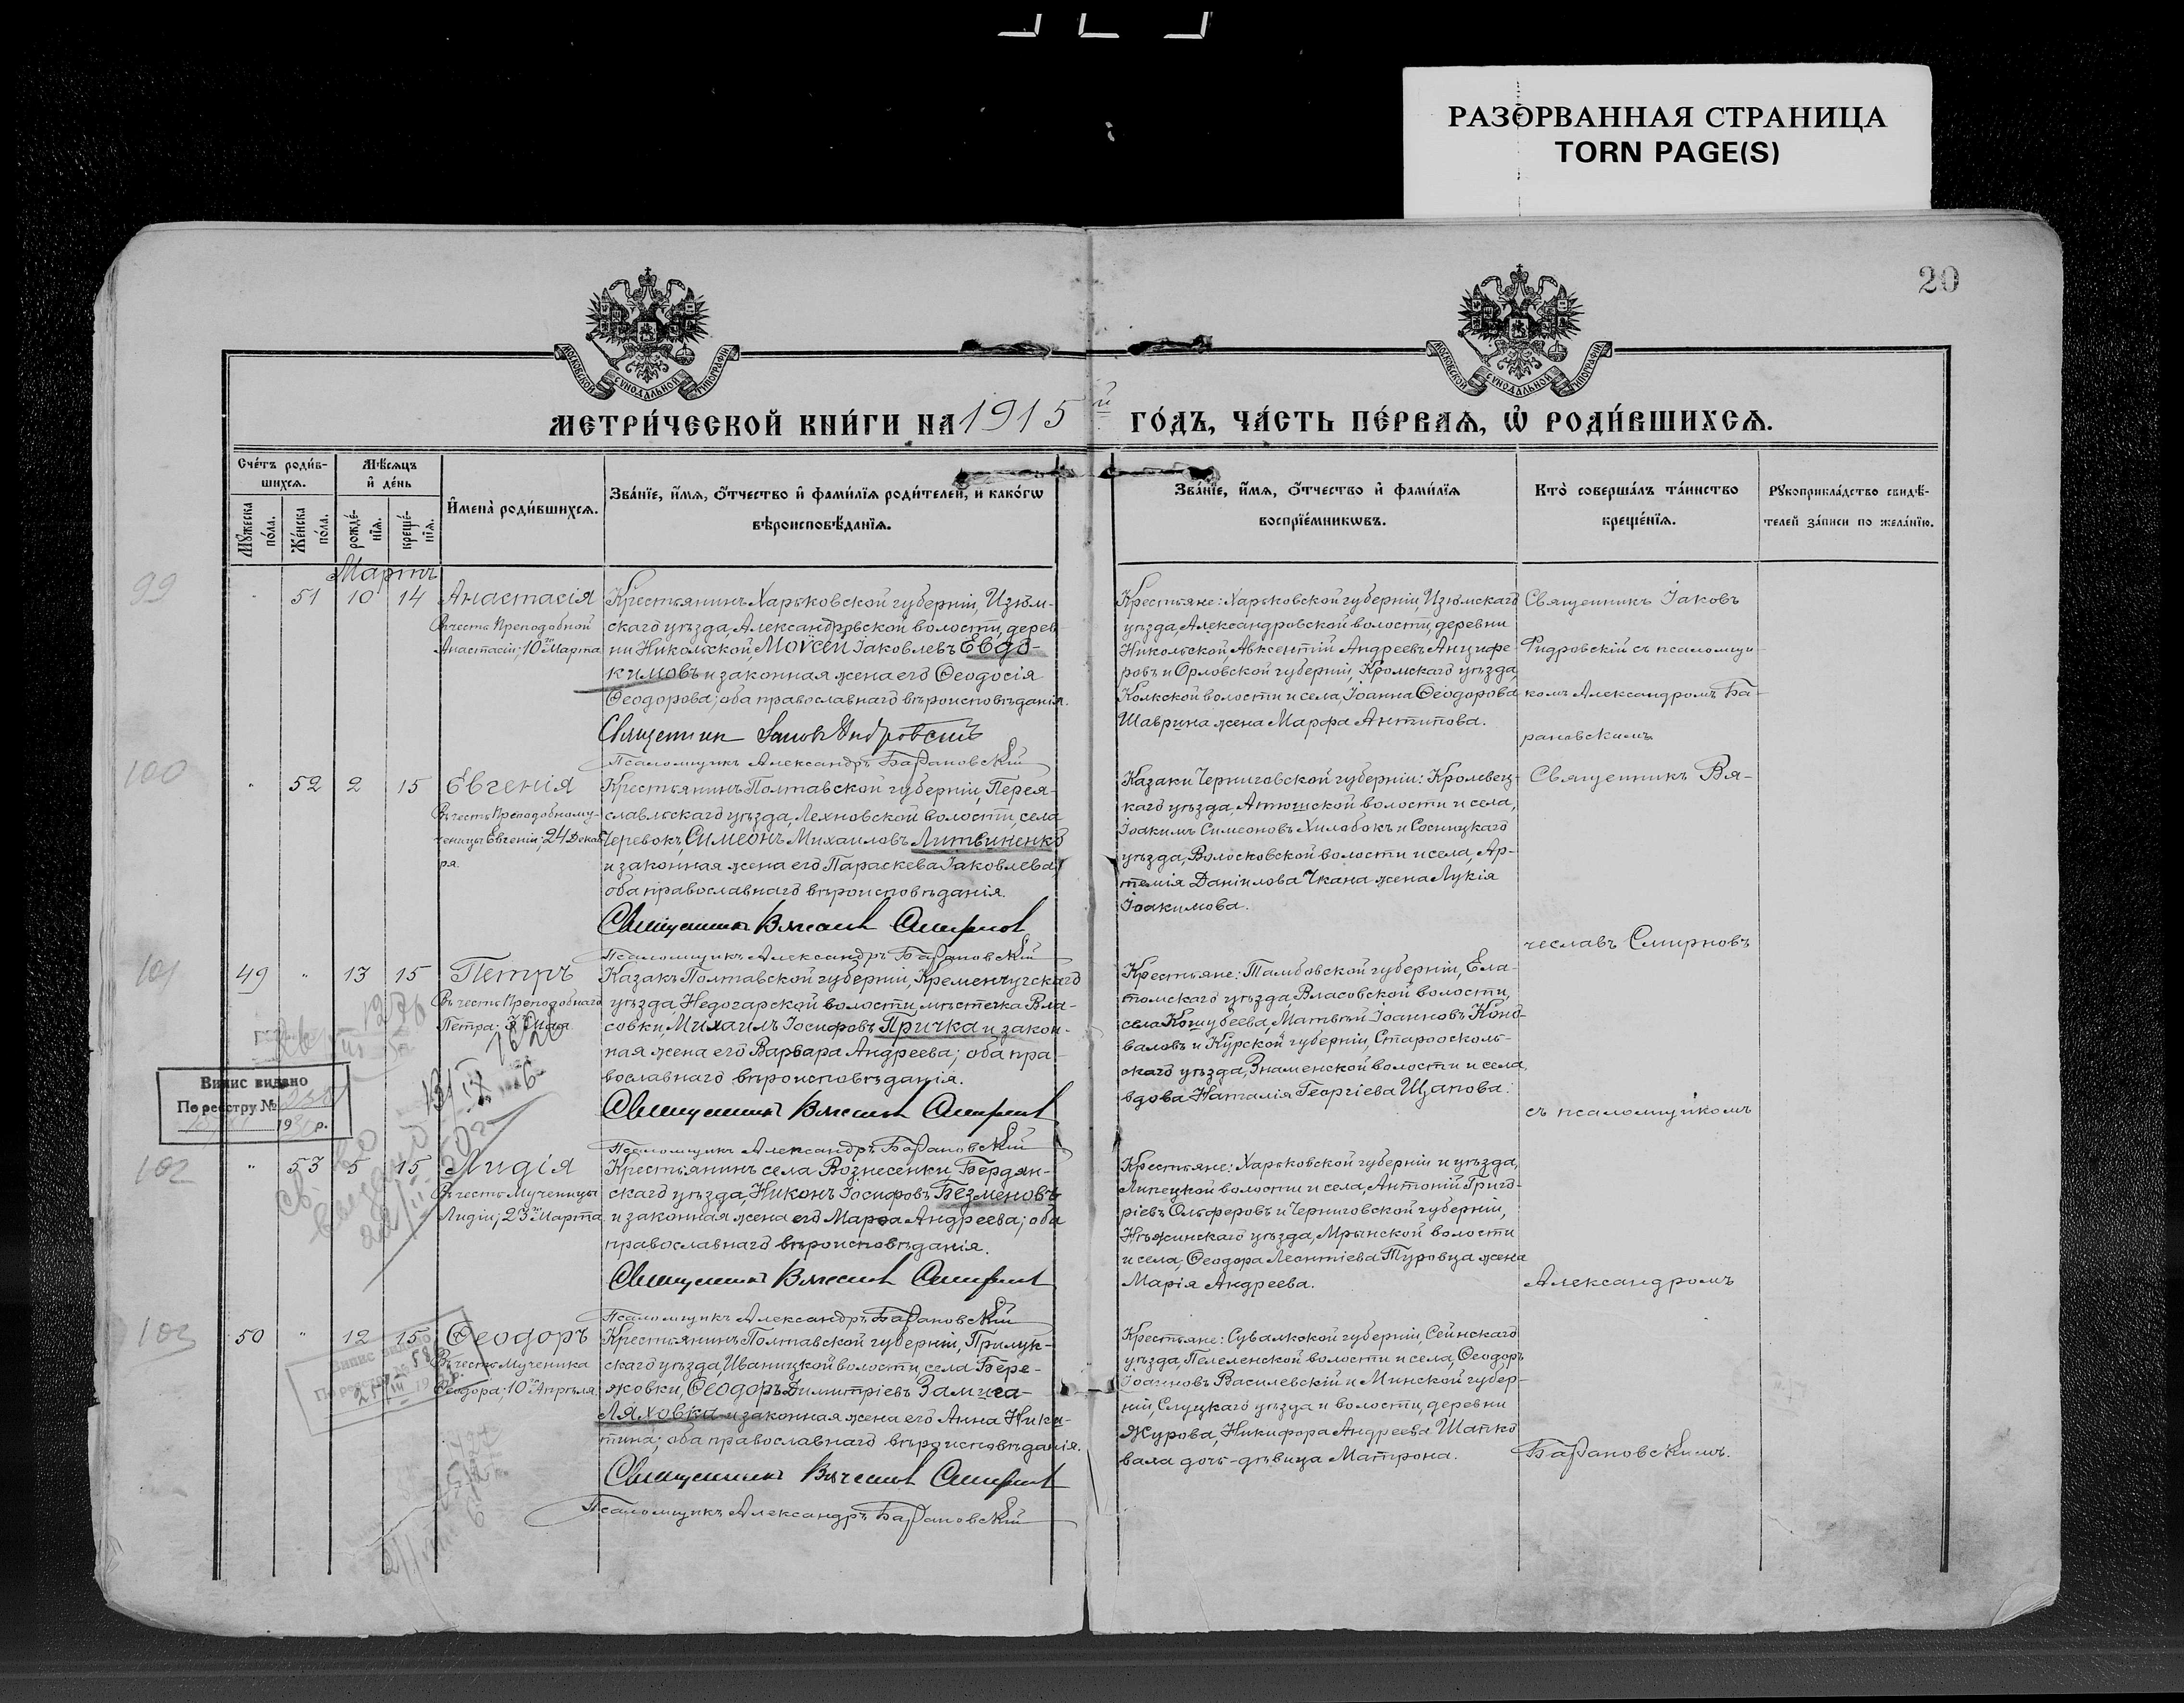 РАЗОРВАННАЯ СТРАНИЦА
TORN PAGE(S)
20
МОСКОВСКОЙ СѴНОДАЛЬНОЙ ТИПОГРАФІИ
МОСКОВСКОЙ СѴНОДАЛЬНОЙ ТИПОГРАФІИ
МЕТРИ́ЧЕСКОЙ КНИ́ГИ НА 1915 й ГО́ДЪ, ЧА́СТЬ ПЕ́РВАѦ, Ѡ҆ РОДИ́ВШИХСѦ.
Сче́тъ роди́в-
шихсѧ.
Мѣ́сѧцъ
и҆ де́нь
Мꙋ́жеска по́ла.
Же́нска по́ла.
рожде́-
нїѧ.
креще́-
нїѧ.
И҆мена̀ роди́вшихсѧ.
Зва́нїе, и҆́мѧ, ѻ҆́тчество и҆ фами́лїѧ роди́телей, и како́гѡ
вѣроисповѣ́данїѧ.
Зва́нїе, и҆́мѧ, ѻ҆́тчество и҆ фами́лїѧ
воспрїе́мникѡвъ.
Кто̀ соверша́лъ та́инство
креще́нїѧ.
Рꙋкоприкла́дство свидѣ́-
телей за́писи по жела́нїю.
Мартъ
99
51 10 14 Анастасія
Въ честь Преподобной
Анастасіи; 10го Марта
Крестьянинъ Харьковской губерніи, Изюм-
скаго уѣзда, Александровской волости, дерев-
ни Никольской, Моѵсей Іаковлевъ Евдо-
кимовъ и законная жена его Ѳеодосія
Ѳеодорова; оба православнаго вѣроисповѣданія.
Священникъ Іаковъ
Псаломщикъ Александръ Барановскій
Крестьяне: Харьковской губерніи, Изюмскаго
уѣзда, Александровской волости, деревни
Никольской, Авксентій Андреевъ Анцифе-
ровъ и Орловской губерніи, Кромскаго уѣзда,
волости и села, Іоанна Ѳеодорова
Шаврина жена Марфа Антипова.
Священникъ Іаковъ
съ псаломщи-
комъ Александромъ Ба-
рановскимъ
100
52 2 15 Евгенія
Въ честь Преподобному-
ченицы Евгеніи; 24 Декаб-
ря.
Крестьянинъ Полтавской губерніи, Перея-
славльскаго уѣзда, Лехновской волости, села
Черевокъ, Симеонъ Михаиловъ Литвиненко
и законная жена его Параскева Іаковлева;
оба православнаго вѣроисповѣданія.
Священникъ Вячеславъ Смирновъ
Псаломщикъ Александръ Барановскій
Казаки Черниговской губерніи: Кролевец-
каго уѣзда, волости и села,
Іоакимъ Симеоновъ Хилобокъ и Сосницкаго
уѣзда, Волосковской волости и села, Ар-
темія Даніилова Чкана жена Лукія
Іоакимова.
Священникъ Вя-
чеславъ Смирновъ
101
49 13 15 Петръ
Въ честь Преподобнаго
Петра;
Казакъ Полтавской губерніи, Кременчугскаго
уѣзда, Недогарской волости, мѣстечка Вла-
совки Михаилъ Іосифовъ Причка и закон-
ная жена его Варвара Андреева; оба пра-
вославнаго вѣроисповѣданія.
Священникъ Вячеславъ Смирновъ
Псаломщикъ Александръ Барановскій
Крестьяне: Тамбовской губерніи, Ела-
томскаго уѣзда, Власовской волости,
села Кошубеева, Матвѣй Іоанновъ Коно-
валовъ и Курской губерніи, Старооскольс-
скаго уѣзда, Знаменской волости и села,
вдова Наталія Георгіева Щапова.
съ псаломщикомъ
Випис видано
По реєстру №
19 р.
102
53 5 15 Лидія
Въ честь Мученицы
Лидіи; 23го Марта
Крестьянинъ села Вознесенки Бердян-
скаго уѣзда, Никонъ Іосифовъ Безменовъ
и законная жена его Марѳа Андреева; оба
православнаго вѣроисповѣданія.
Священникъ Вячеславъ Смирновъ
Псаломщикъ Александръ Барановскій
Крестьяне: Харьковской губерніи и уѣзда,
Липецкой волости и села, Антоній Григо-
ріевъ Ольферовъ и Черниговской губерніи,
Нѣжинскаго уѣзда, Мрынской волости
и села, Ѳеодора Леонтіева Туровца жена
Марія Андреева.
Александромъ
103
50 12 15 Ѳеодоръ
Въ честь Мученика
Ѳеодора; 10го Апрѣля
Крестьянинъ Полтавской губерніи, Прилук-
скаго уѣзда, Иваницкой волости, села Бере-
жовки, Ѳеодоръ Димитріевъ
Ляховка и законная жена его Анна Ники-
тина; оба православнаго вѣроисповѣданія.
Священникъ Вячеславъ Смирновъ
Псаломщикъ Александръ Барановскій
Крестьяне: Сувалкской губерніи, Сейнскаго
уѣзда, волости и села, Ѳеодоръ
Іоанновъ Василевскій и Минской губер-
ніи, Слуцкаго уѣзда и волости, деревни
Журова, Никифора Андреева Шапко-
вала дочь-дѣвица Матрона.
Барановскимъ.
Випис видано
По реєстру № 58